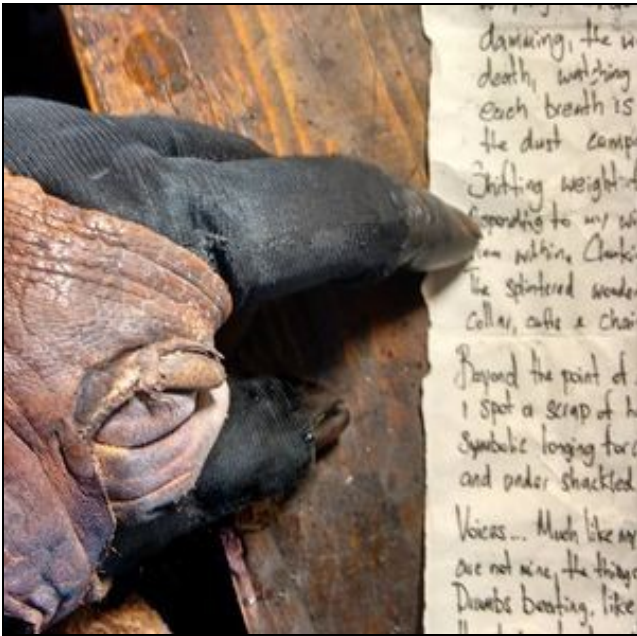 damning, the w
death, watching
each breath is
the dust camp
Shifting weight
to my w
within. Clonki
The splintered wooden
Collar, cuffs & chai
Beyond the point of
I spot a scrap of h
Symbolic longing for
and under shackled
Voices... Much like my
are not mine, the things
Drumbs beating, like